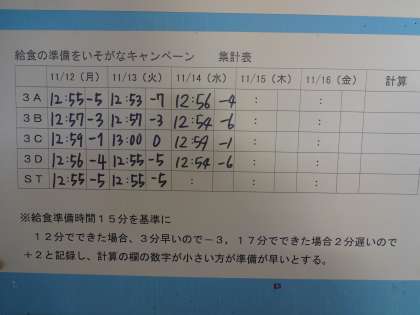 給食の準備をいそがなキャンペーン　集計表
11/12（月） 11/13（火） 11/14（水） 11/15（木） 11/16（金） 計算
3A 12:55 -5 12:53 -7 12:56 -4 : :
3B 12:57 -3 12:57 -3 12:54 -6 : :
3C 12:59 -1 13:00 0 12:59 -1 : :
3D 12:56 -4 12:55 -5 12:54 -6 : :
ST 12:55 -5 12:55 -5 : : :
※給食準備時間15分を基準に
12分でできた場合、3分早いので－3，17分でできた場合2分遅いので
＋2と記録し、計算の欄の数字が小さい方が準備が早いとする。